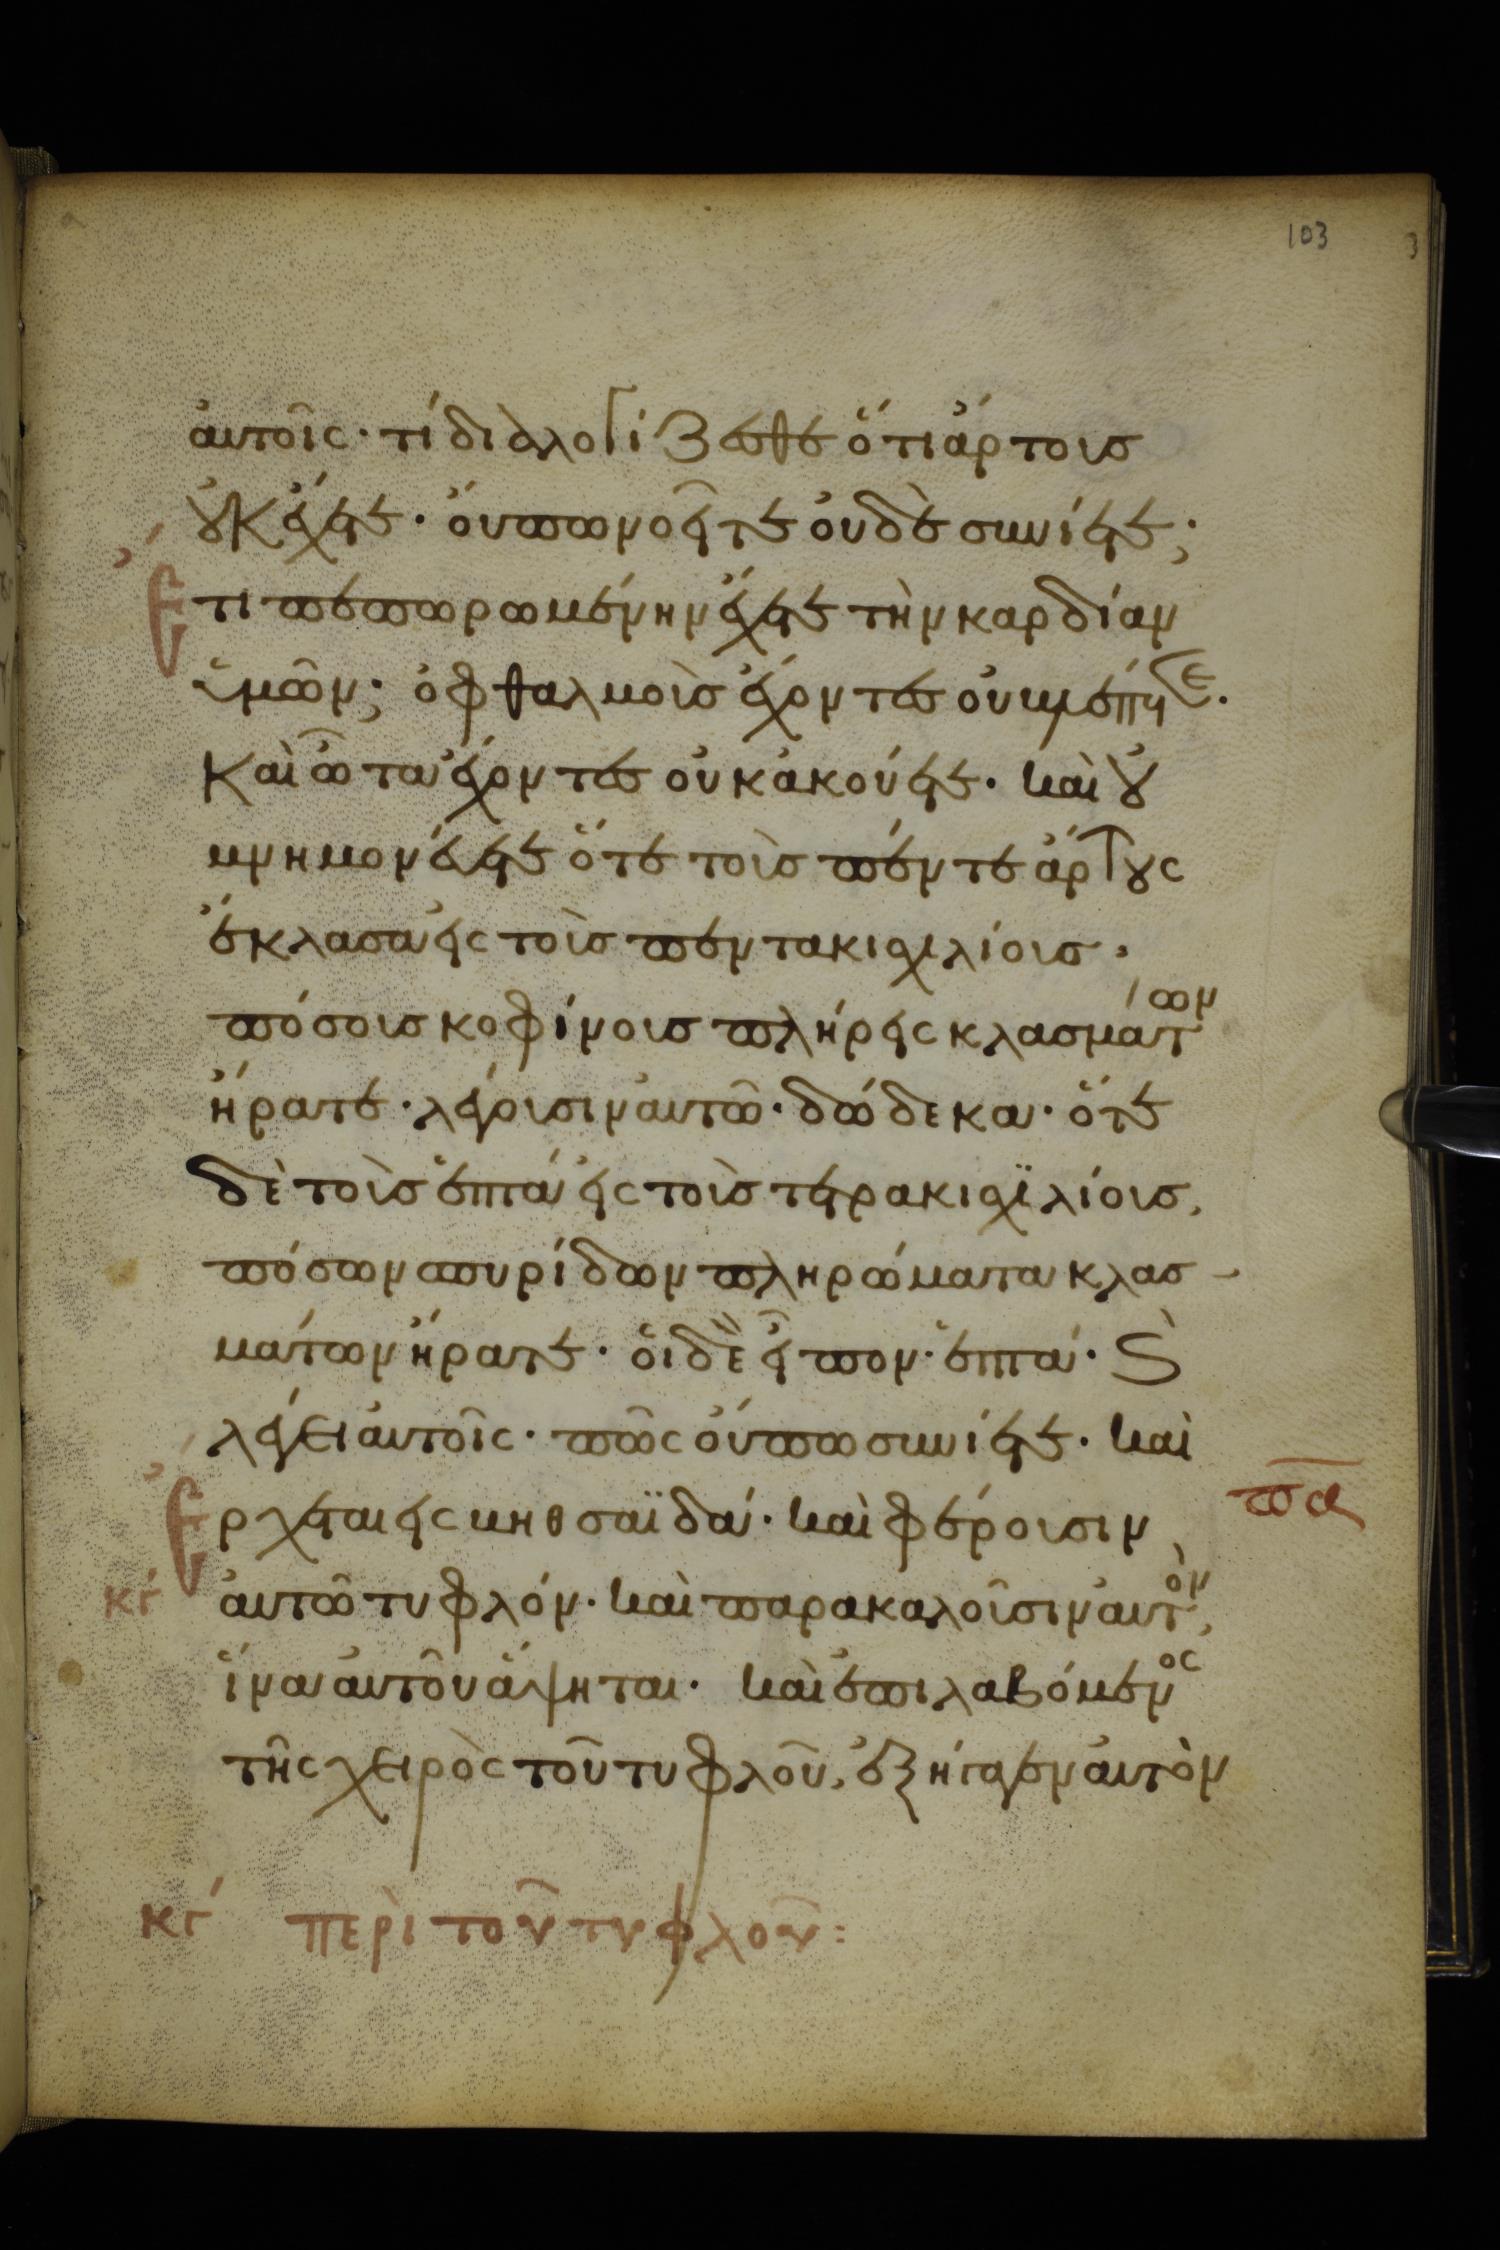 103
αὐτοῖς· τί διαλογίζεσθε ὅτι ἄρτους
οὐκ ἔχετε· οὔπω νοεῖτε οὐδὲ συνίετε;
Ἔτι πεπωρωμένην ἔχετε τὴν καρδίαν
ὑμῶν; ὀφθαλμοὺς ἔχοντες οὐ βλέπετε·
καὶ ὦτα ἔχοντες οὐκ ἀκούετε· καὶ οὐ
μνημονεύετε ὅτε τοὺς πέντε ἄρτους
ἔκλασα εἰς τοὺς πεντακισχιλίους·
πόσους κοφίνους πλήρεις κλασμάτων
ἤρατε· λέγουσιν αὐτῷ· δώδεκα· ὅτε
δὲ τοὺς ἑπτὰ εἰς τοὺς τετρακισχιλίους,
πόσων σπυρίδων πληρώματα κλασ-
μάτων ἤρατε· οἱ δὲ εἶπον· ἑπτά· καὶ
λέγει αὐτοῖς· πῶς οὔπω συνίετε· καὶ
Ἔρχεται εἰς βηθσαϊδά· καὶ φέρουσιν
πα
κγ
αὐτῷ τυφλόν· καὶ παρακαλοῦσιν αὐτὸν,
ἵνα αὐτοῦ ἅψηται· καὶ ἐπιλαβόμενος
τῆς χειρὸς τοῦ τυφλοῦ, ἐξήγαγεν αὐτὸν
κγ περὶ τοῦ τυφλοῦ: